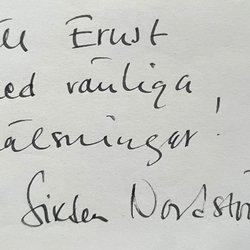 ll Ernst
ed vänliga
älsningar!
Sixten Nordströ